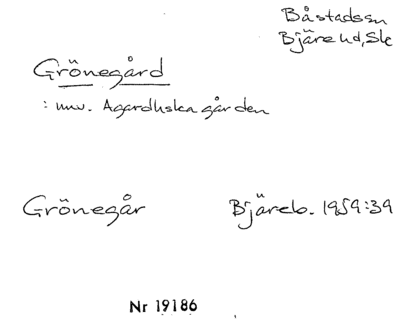 Båstadssn
Bjäre hd, Sk
Grönegård
: nuv. Agardhska gården
Grönegår Bjäreb. 1959:39
Nr 19186